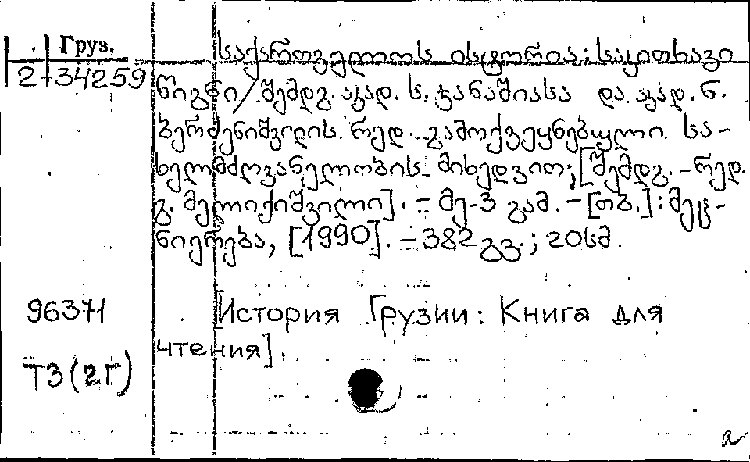 Груз.
2-34259
საქართველოს ისტორია: საკითხავი
წიგნი / შემდგ. აკად. ს. ჯანაშიასა და აკად. ნ.
ბერძენიშვილის რედ. გამოქვეყნებული სა-
ხელმძღვანელობის მიხედვით; [შემდგ.-რედ.
გ. მელიქიშვილი]. - მე-3 გამ. - [თბ.]: მეც-
ნიერება, [1990]. - 382 გვ.; 20სმ.
96371
[История Грузии: Книга для
чтения].
Т3(2Г)
а